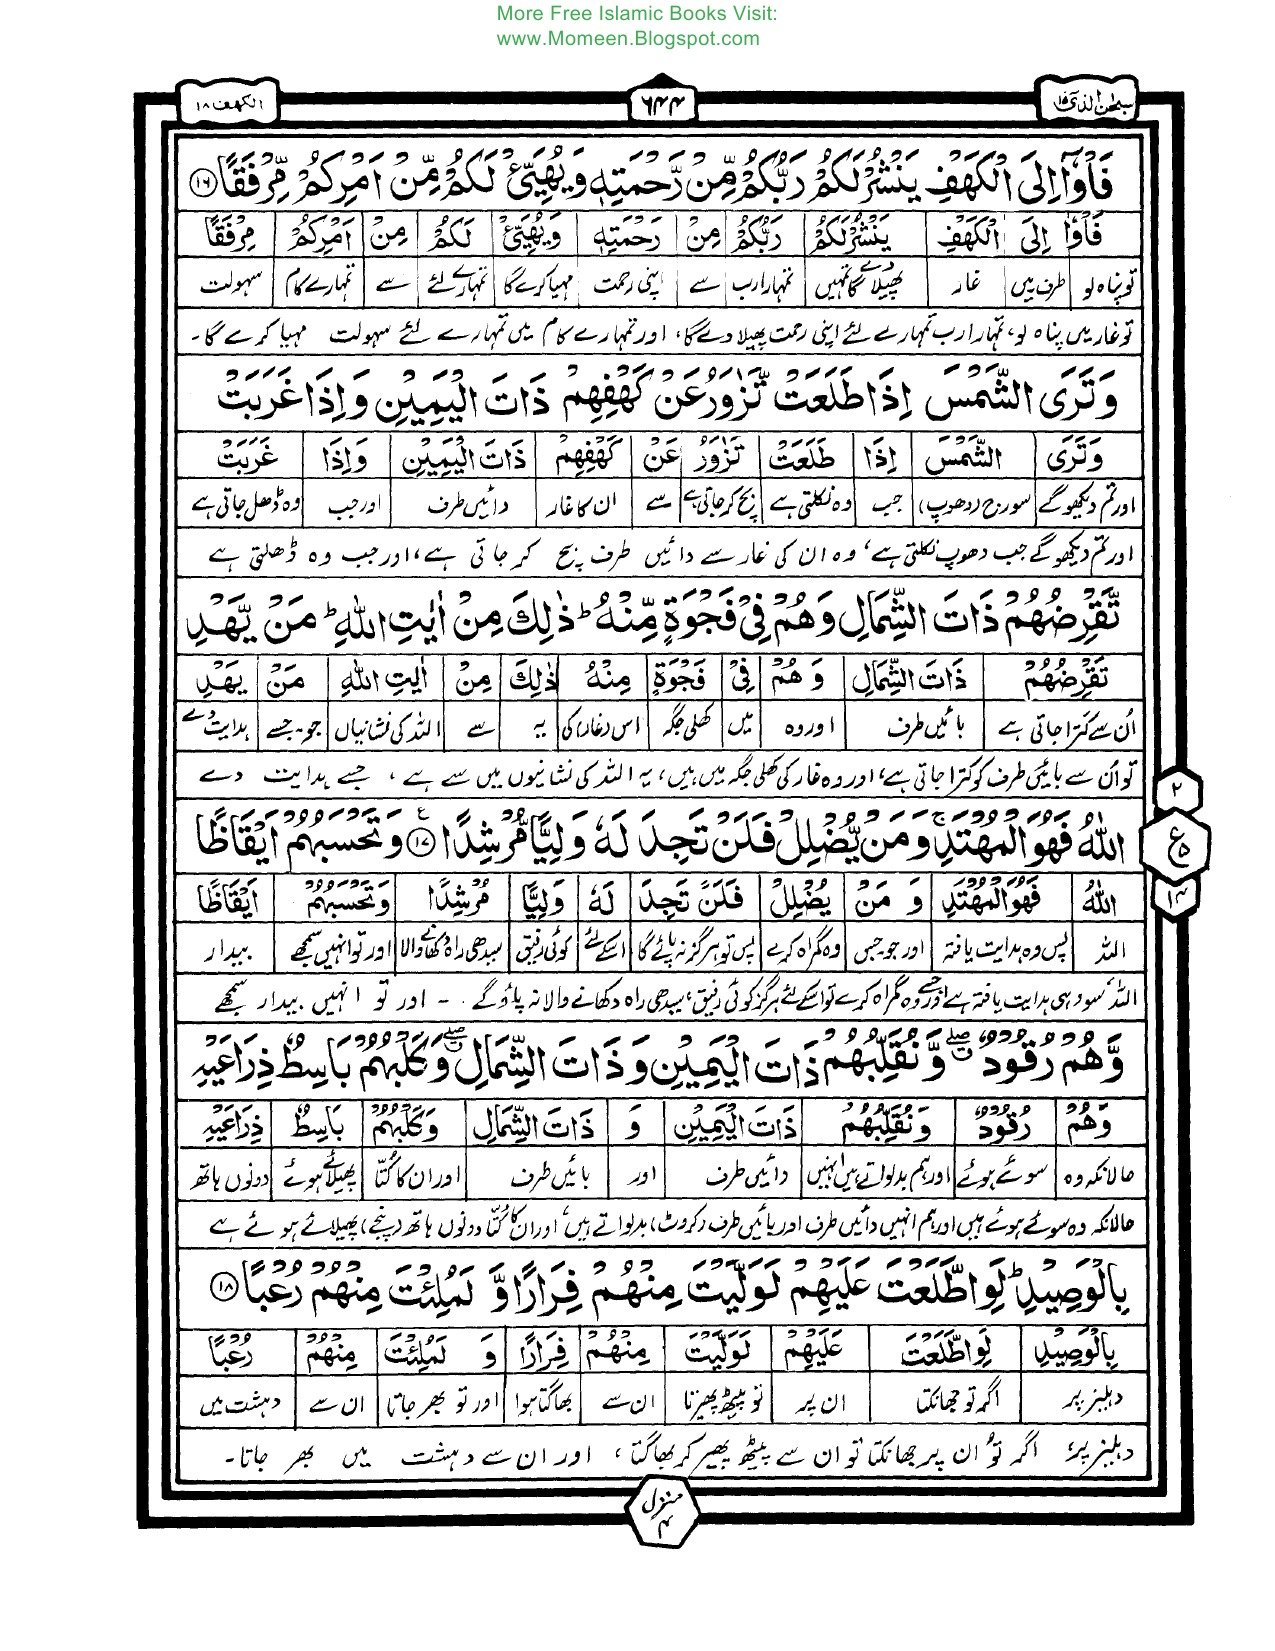 More Free Islamic Books Visit:
www.Momeen.Blogspot.com
سبحٰن الذی ۱۵
۶۴۴
الکھف ۱۸
فَاْوٗۤا اِلَى الْكَهْفِ يَنْشُرْ لَكُمْ رَبُّكُمْ مِّنْ رَّحْمَتِهٖ وَيُهَيِّئْ لَكُمْ مِّنْ اَمْرِكُمْ مِّرْفَقًا ﴿۱۶﴾
فَاْوٗا اِلَى الْكَهْفِ يَنْشُرْ لَكُمْ رَبُّكُمْ مِنْ رَحْمَتِهٖ وَيُهَيِّئْ لَكُمْ مِنْ اَمْرِكُمْ مِرْفَقًا
تو پناہ لو طرف میں غار پھیلا دے گا تمہیں تمہارا رب سے اپنی رحمت مہیا کرے گا تمہارے لئے سے تمہارے کام سہولت
تو غار میں پناہ لو، تمہارا رب تمہارے لئے اپنی رحمت پھیلا دے گا، اور تمہارے کام میں تمہارے لئے سہولت مہیا کرے گا۔
وَتَرَى الشَّمْسَ اِذَا طَلَعَتْ تَّزٰوَرُ عَنْ كَهْفِهِمْ ذَاتَ الْيَمِيْنِ وَاِذَا غَرَبَتْ
وَتَرَى الشَّمْسَ اِذَا طَلَعَتْ تَزٰوَرُ عَنْ كَهْفِهِمْ ذَاتَ الْيَمِيْنِ وَاِذَا غَرَبَتْ
اور تم دیکھو گے سورج (دھوپ) جب وہ نکلتی ہے بچ کر جاتی ہے سے ان کا غار دائیں طرف اور جب وہ ڈھل جاتی ہے
اور تم دیکھو گے جب دھوپ نکلتی ہے، وہ ان کی غار سے دائیں طرف بچ کر جاتی ہے، اور جب وہ ڈھلتی ہے
تَّقْرِضُهُمْ ذَاتَ الشِّمَالِ وَهُمْ فِيْ فَجْوَةٍ مِّنْهُ ؕ ذٰلِكَ مِنْ اٰيٰتِ اللّٰهِ ؕ مَنْ يَّهْدِ
تَقْرِضُهُمْ ذَاتَ الشِّمَالِ وَهُمْ فِيْ فَجْوَةٍ مِنْهُ ذٰلِكَ مِنْ اٰيٰتِ اللّٰهِ مَنْ يَهْدِ
اُن سے کترا جاتی ہے بائیں طرف اور وہ میں کھلی جگہ اس (غار) کی یہ سے اللہ کی نشانیاں جو۔جسے ہدایت دے
تو اُن سے بائیں طرف کو کترا جاتی ہے، اور وہ غار کی کھلی جگہ میں ہیں، یہ اللہ کی نشانیوں میں سے ہے، جسے ہدایت دے
۲
ع
۵
۱۴
اللّٰهُ فَهُوَ الْمُهْتَدِ ۚ وَمَنْ يُّضْلِلْ فَلَنْ تَجِدَ لَهٗ وَلِيًّا مُّرْشِدًا ﴿۱۷﴾ ع وَتَحْسَبُهُمْ اَيْقَاظًا
اللّٰهُ فَهُوَ الْمُهْتَدِ وَ مَنْ يُضْلِلْ فَلَنْ تَجِدَ لَهٗ وَلِيًّا مُرْشِدًا وَتَحْسَبُهُمْ اَيْقَاظًا
اللہ پس وہ ہدایت یافتہ اور جو جس وہ گمراہ کرے پس تو ہرگز نہ پائے گا اسکے لئے کوئی رفیق سیدھی راہ دکھانے والا اور تو انہیں سمجھے بیدار
اللہ سو وہی ہدایت یافتہ ہے اور جسے وہ گمراہ کرے تو اسکے لئے ہرگز کوئی رفیق، سیدھی راہ دکھانے والا نہ پاؤ گے۔ - اور تو انہیں بیدار سمجھے
وَّهُمْ رُقُوْدٌ ۖۗ وَّنُقَلِّبُهُمْ ذَاتَ الْيَمِيْنِ وَذَاتَ الشِّمَالِ ۖۗ وَكَلْبُهُمْ بَاسِطٌ ذِرَاعَيْهِ
وَهُمْ رُقُوْدٌ وَنُقَلِّبُهُمْ ذَاتَ الْيَمِيْنِ وَ ذَاتَ الشِّمَالِ وَكَلْبُهُمْ بَاسِطٌ ذِرَاعَيْهِ
حالانکہ وہ سوئے ہوئے اور ہم بدلواتے ہیں انہیں دائیں طرف اور بائیں طرف اور ان کا کُتّا پھیلائے ہوئے دونوں ہاتھ
حالانکہ وہ سوئے ہوئے ہیں اور ہم انہیں دائیں طرف اور بائیں طرف (کروٹ) بدلواتے ہیں، اور ان کا کُتّا دونوں ہاتھ (پنجے) پھیلائے ہوئے ہے
بِالْوَصِيْدِ ؕ لَوِ اطَّلَعْتَ عَلَيْهِمْ لَوَلَّيْتَ مِنْهُمْ فِرَارًا وَّ لَمُلِئْتَ مِنْهُمْ رُعْبًا ﴿۱۸﴾
بِالْوَصِيْدِ لَوِ اطَّلَعْتَ عَلَيْهِمْ لَوَلَّيْتَ مِنْهُمْ فِرَارًا وَ لَمُلِئْتَ مِنْهُمْ رُعْبًا
دہلیز پر اگر تو جھانکتا ان پر تو پیٹھ پھیرتا ان سے بھاگتا ہوا اور تو بھر جاتا ان سے دہشت میں
دہلیز پر، اگر تُو ان پر جھانکتا تو ان سے پیٹھ پھیر کر بھاگتا، اور ان سے دہشت میں بھر جاتا۔
منزل
۴